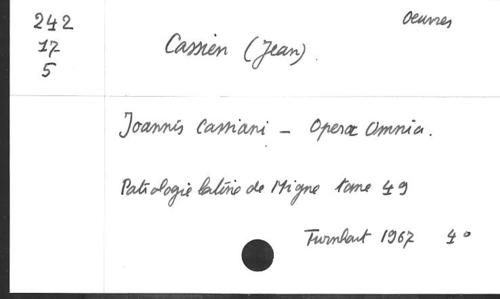 242
17
5
Oeuvres
Cassien (Jean).
Joannis Cassiani - Operæ Omnia.
Patrologie latine de Migne tome 49
Turnhout 1967 4°